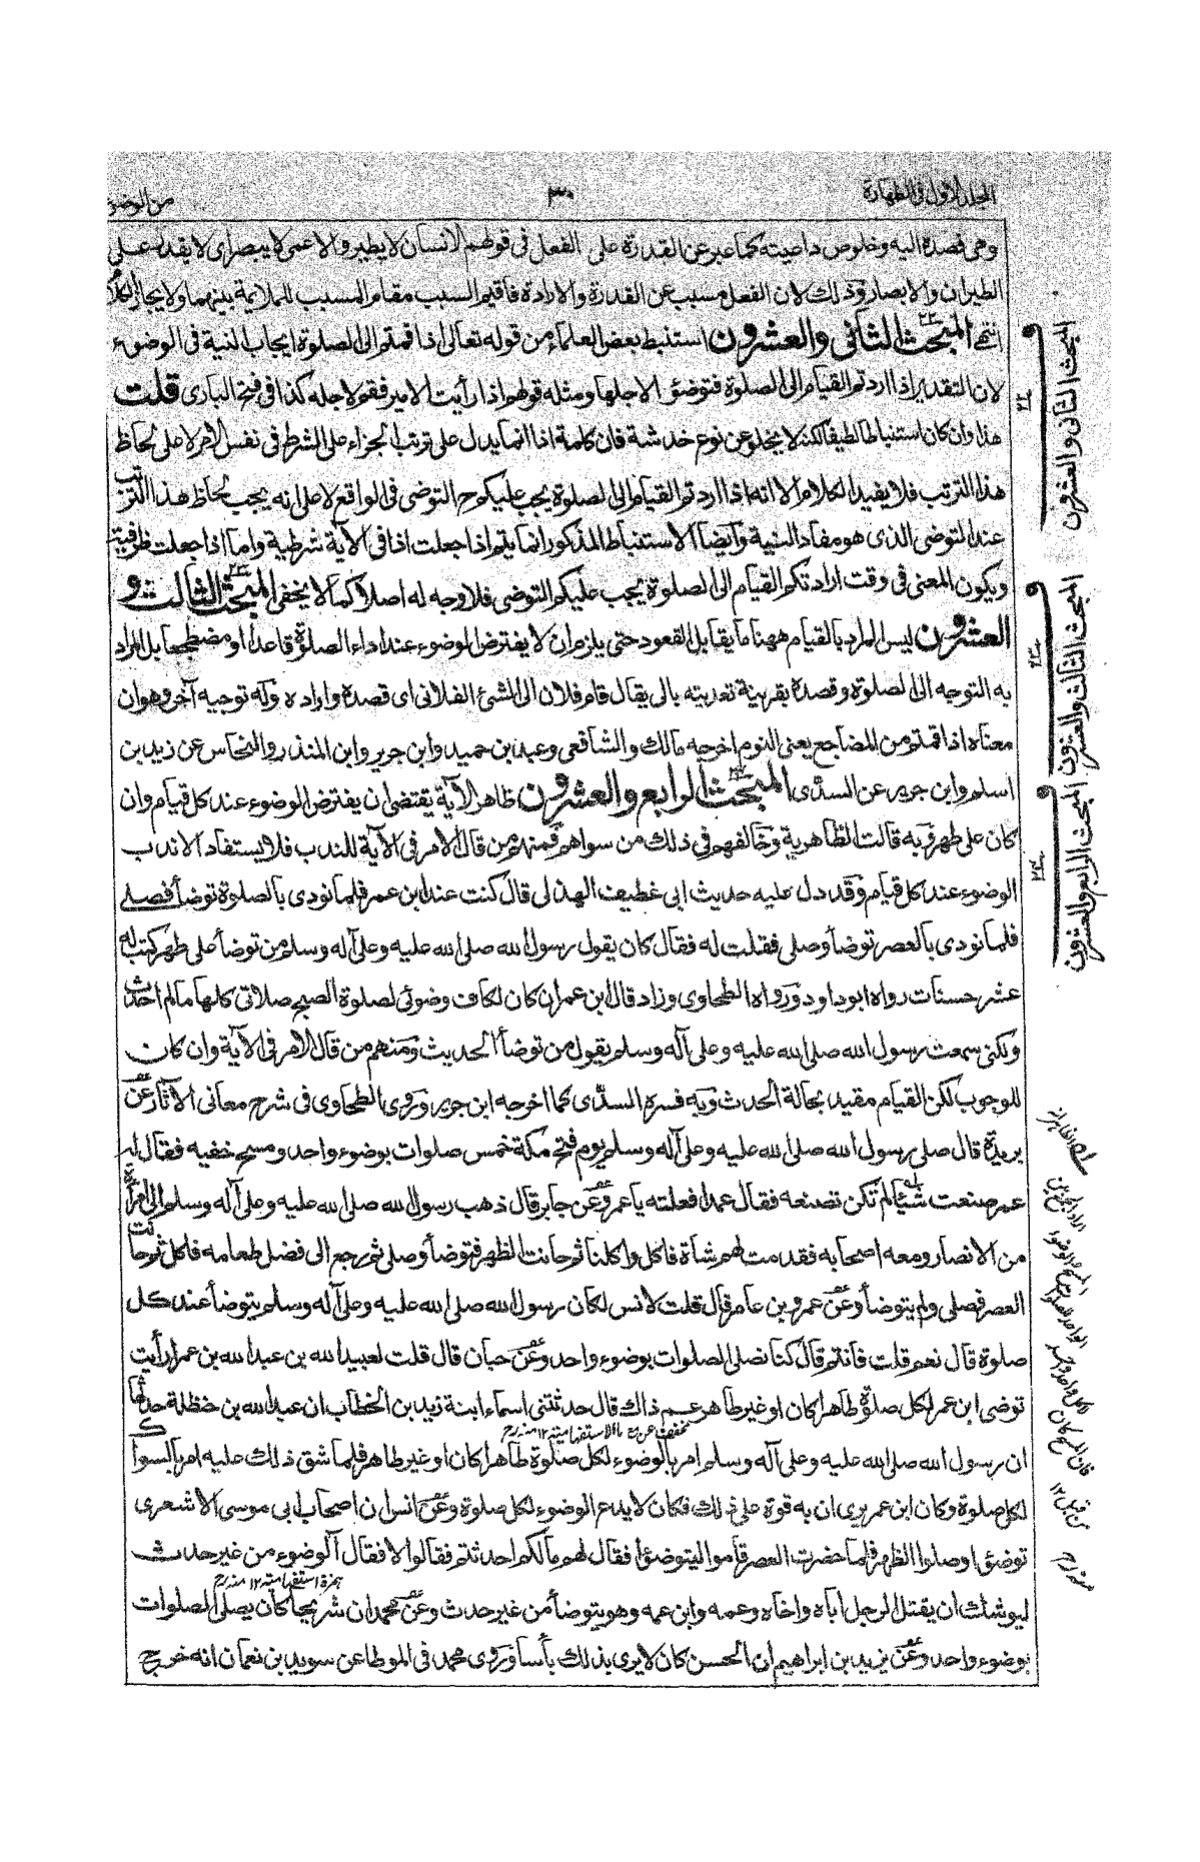 المجلد الاول فى الطهارة
٣٠
من الوضوء
وهى قصده اليه وخلوص داعيته كما عبر عن القدرة على الفعل فى قولهم الانسان لا يطير والاعمى لا يبصر اى لا يقدر على
الطيران والابصار وذلك لان الفعل مسبب عن القدرة والارادة فاقيم السبب مقام المسبب للملايمة بينهما ولايجاز الكلام
انتهى المبحث الثانى والعشرون استنبط بعض العلماء من قوله تعالى اذا قمتم الى الصلوة ايجاب النية فى الوضوء
لان التقدير اذا اردتم القيام الى الصلوة فتوضئوا لاجلها ومثله قولهم اذا رأيت الامير فقم لاجله كذا فى فتح البارى قلت
هذا وان كان استنباطا لطيفا لكنه لا يخلو عن نوع خدشة فان كلمة اذا انما يدل على ترتب الجزاء على الشرط فى نفس الامر لا على لحاظ
هذا الترتب فلا يفيد الكلام الا انه اذا اردتم القيام الى الصلوة يجب عليكم التوضى فى الواقع لا على انه يجب لحاظ هذا الترتب
عند التوضى الذى هو مفاد النية وايضا الاستنباط المذكور انما يتم اذا جعلت اذا فى الآية شرطية واما اذا جعلت ظرفية
ويكون المعنى فى وقت ارادتكم القيام الى الصلوة يجب عليكم التوضى فلا وجه له اصلا كما لا يخفى المبحث الثالث و
العشرون ليس المراد بالقيام ههنا ما يقابل القعود حتى يلزم ان لا يفترض الوضوء عند اداء الصلوة قاعدا او مضطجعا بل المراد
به التوجه الى الصلوة وقصده بقرينة تعديته بالى يقال قام فلان الى الشئ الفلانى اى قصده واراده وله توجيه آخر وهو ان
معناه اذا قمتم من المضاجع يعنى النوم اخرجه مالك والشافعى وعبد بن حميد وابن جرير وابن المنذر والنحاس عن زيد بن
اسلم وابن جرير عن السدى المبحث الرابع والعشرون ظاهر الآية يقتضى ان يفترض الوضوء عند كل قيام وان
كان على طهر وبه قالت الظاهرية وخالفهم فى ذلك من سواهم فمنهم من قال الامر فى الآية للندب فلا يستفاد الا ندب
الوضوء عند كل قيام وقد دل عليه حديث ابى غطيف الهذلى قال كنت عند ابن عمر فلما نودى بالصلوة توضأ فصلى
فلما نودى بالعصر توضأ وصلى فقلت له فقال كان يقول رسول الله صلى الله عليه وعلى آله وسلم من توضأ على طهر كتب له
عشر حسنات رواه ابوداود ورواه الطحاوى وزاد قال ابن عمر ان كان لكاف وضوئى لصلوة الصبح صلاتى كلها ما لم احدث
ولكنى سمعت رسول الله صلى الله عليه وعلى آله وسلم يقول من توضأ الحديث ومنهم من قال الامر فى الآية وان كان
للوجوب لكن القيام مقيد بحالة الحدث وبه فسره السدى كما اخرجه ابن جرير وروى الطحاوى فى شرح معانى الآثار عن
بريدة قال صلى رسول الله صلى الله عليه وعلى آله وسلم يوم فتح مكة خمس صلوات بوضوء واحد ومسح خفيه فقال له
عمر صنعت شيئا لم تكن تصنعه فقال عمدا فعلته يا عمر وعن جابر قال ذهب رسول الله صلى الله عليه وعلى آله وسلم الى امرأة
من الانصار ومعه اصحابه فقدمت لهم شاة فاكل واكلنا ثم حانت الظهر فتوضأ وصلى ثم رجع الى فضل طعامه فاكل ثم حانت
العصر فصلى ولم يتوضأ وعن عمرو بن عامر قال قلت لانس لكان رسول الله صلى الله عليه وعلى آله وسلم يتوضأ عند كل
صلوة قال نعم قلت فانتم قال كنا نصلى الصلوات بوضوء واحد وعن حبان قال قلت لعبيد الله بن عبد الله بن عمر ارأيت
توضى ابن عمر لكل صلوة طاهرا كان او غير طاهر عم ذاك قال حدثتنى اسماء ابنة زيد بن الخطاب ان عبد الله بن حنظلة حدثها
مخفف عن ما الاستفهامية ١٢ منه رح
ان رسول الله صلى الله عليه وعلى آله وسلم امر بالوضوء لكل صلوة طاهرا كان او غير طاهر فلما شق ذلك عليه امر بالسواك
لكل صلوة وكان ابن عمر يرى ان به قوة على ذلك فكان لا يدع الوضوء لكل صلوة وعن انس ان اصحاب ابى موسى الاشعرى
توضئوا وصلوا الظهر فلما حضرت العصر قاموا ليتوضئوا فقال لهم مالكم احدثتم فقالوا لا فقال آلوضوء من غير حدث
همزة استفهامية ١٢ منه رح
ليوشك ان يقتل الرجل اباه واخاه وعمه وابن عمه وهو يتوضأ من غير حدث وعن محمد ان شريحا كان يصلى الصلوات
بوضوء واحد وعن يزيد بن ابراهيم ان الحسن كان لا يرى بذلك بأسا وروى محمد فى الموطا عن سويد بن نعمان انه خرج
المبحث الثانى والعشرون
٢٢
المبحث الثالث والعشرون
٢٣
المبحث الرابع والعشرون
٢٤